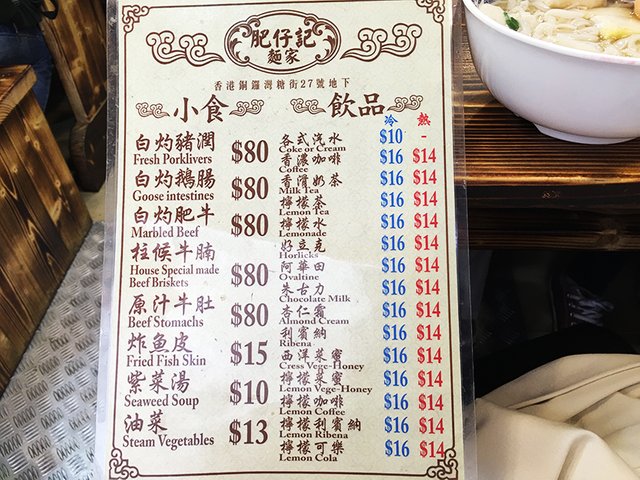 肥仔記
麵家
香港銅鑼灣糖街27號地下
小食
白灼豬潤 $80
Fresh Porklivers
白灼鵝腸 $80
Goose intestines
白灼肥牛 $80
Marbled Beef
柱侯牛腩 $80
House Special made
Beef Briskets
原汁牛肚 $80
Beef Stomachs
炸魚皮 $15
Fried Fish Skin
紫菜湯 $10
Seaweed Soup
油菜 $13
Steam Vegetables
飲品
冷 熱
各式汽水 $10 -
Coke or Cream
香濃咖啡 $16 $14
Coffee
香滑奶茶 $16 $14
Milk Tea
檸檬茶 $16 $14
Lemon Tea
檸檬水 $16 $14
Lemonade
好立克 $16 $14
Horlicks
阿華田 $16 $14
Ovaltine
朱古力 $16 $14
Chocolate Milk
杏仁霜 $16 $14
Almond Cream
利賓納 $16 $14
Ribena
西洋菜蜜 $16 $14
Cress Vege-Honey
檸檬菜蜜 $16 $14
Lemon Vege-Honey
檸檬咖啡 $16 $14
Lemon Coffee
檸檬利賓納 $16 $14
Lemon Ribena
檸檬可樂 $16 $14
Lemon Cola